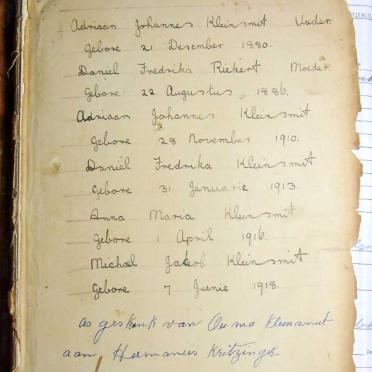 Adriaan Johannes Kleinsmit Vader
Gebore 21 Desember 1880.
Daniel Fredrika Rickert Moeder.
Gebore 22 Augustus 1886.
Adriaan Johannes Kleinsmit
Gebore 28 November 1910.
Daniel Fredrika Kleinsmit
Gebore 31 Januarie 1913.
Anna Maria Kleinsmit
Gebore 1 April 1916.
Michael Jakob Kleinsmit
Gebore 7 Junie 1918.
as geskenk van Ouma Kleinsmit
aan Hermanus Kritzinger